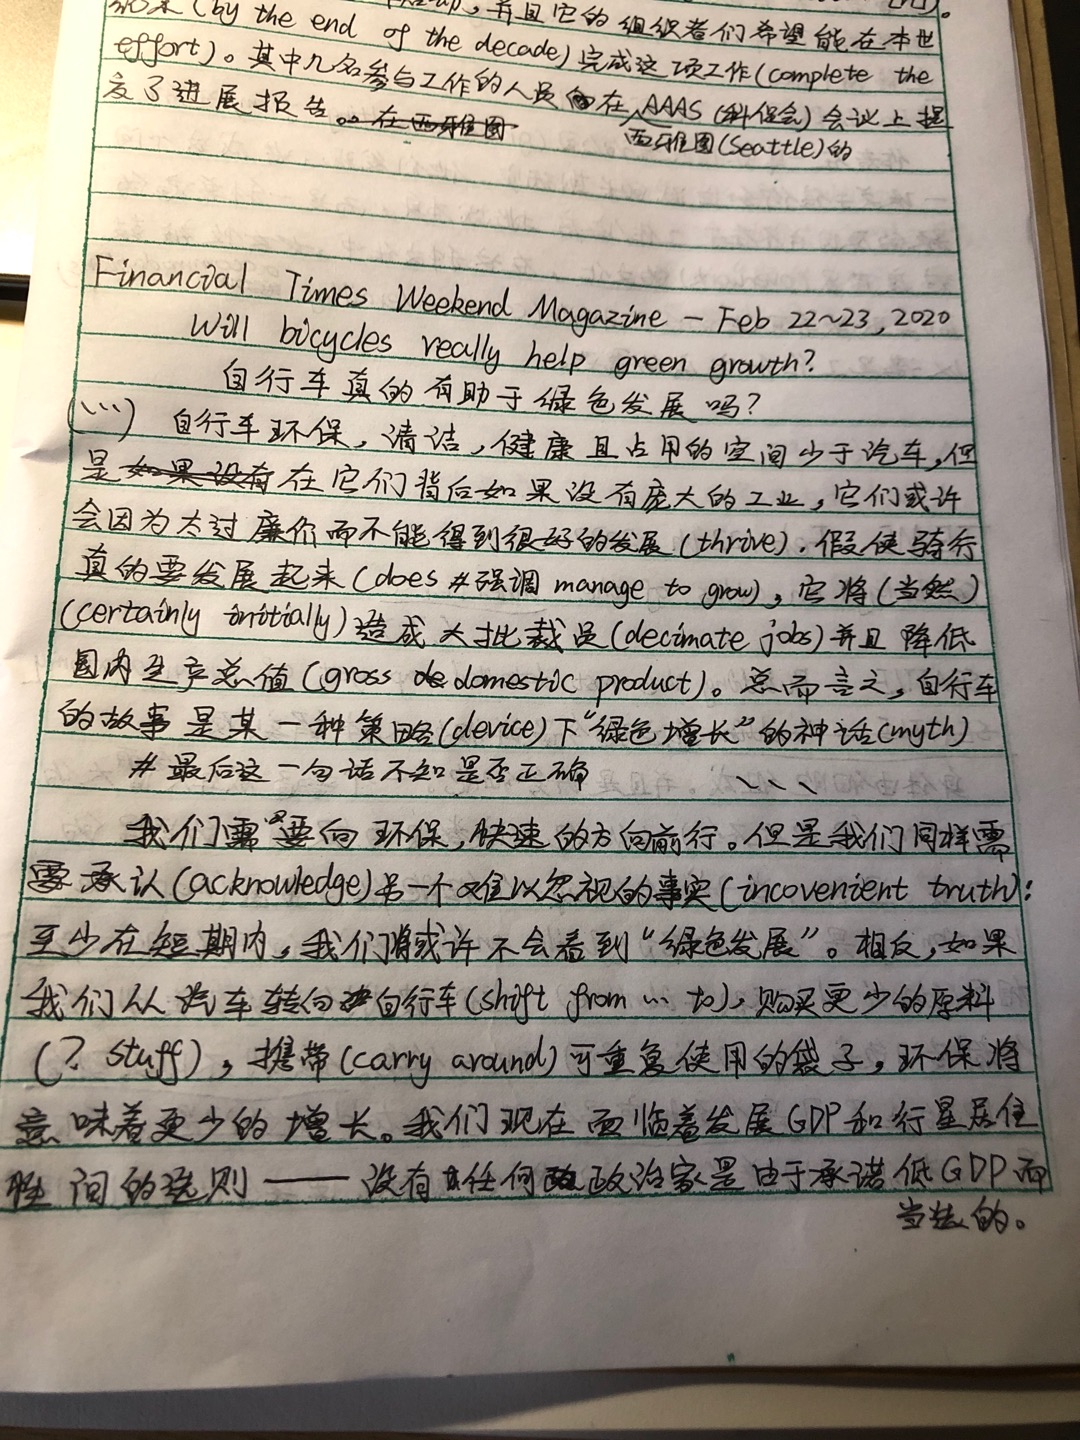 结束(by the end of the decade)完成这项工作(complete the
，并且它的组织者们希望能在本世
effort)。其中几名参与工作的人员在AAAS(科促会)会议上提
交了进展报告。在西雅图
西雅图(Seattle)的
Financial Times Weekend Magazine — Feb 22~23, 2020
Will bicycles really help green growth?
自行车真的有助于绿色发展吗?
(...) 自行车环保，清洁，健康且占用的空间少于汽车，但
是如果没有在它们背后如果没有庞大的工业，它们或许
会因为太过廉价而不能得到很好的发展(thrive)．假使骑行
真的要发展起来(does #强调 manage to grow)，它将(当然)
(certainly initially)造成大批裁员(decimate jobs)并且降低
国内生产总值(gross domestic product)。总而言之，自行车
的故事是某一种策略(device)下"绿色增长"的神话(myth)
# 最后这一句话不知是否正确
我们需要向环保，快速的方向前行。但是我们同样需
要承认(acknowledge)另一个难以忽视的事实(incovenient truth):
至少在短期内，我们或许不会看到"绿色发展"。相反，如果
我们从汽车转向自行车(shift from ... to)，购买更少的原料
(? stuff)，携带(carry around)可重复使用的袋子，环保将
意味着更少的增长。我们现在面临着发展GDP和行星居住
性间的选则——没有任何政治家是由于承诺低GDP而
当选的。